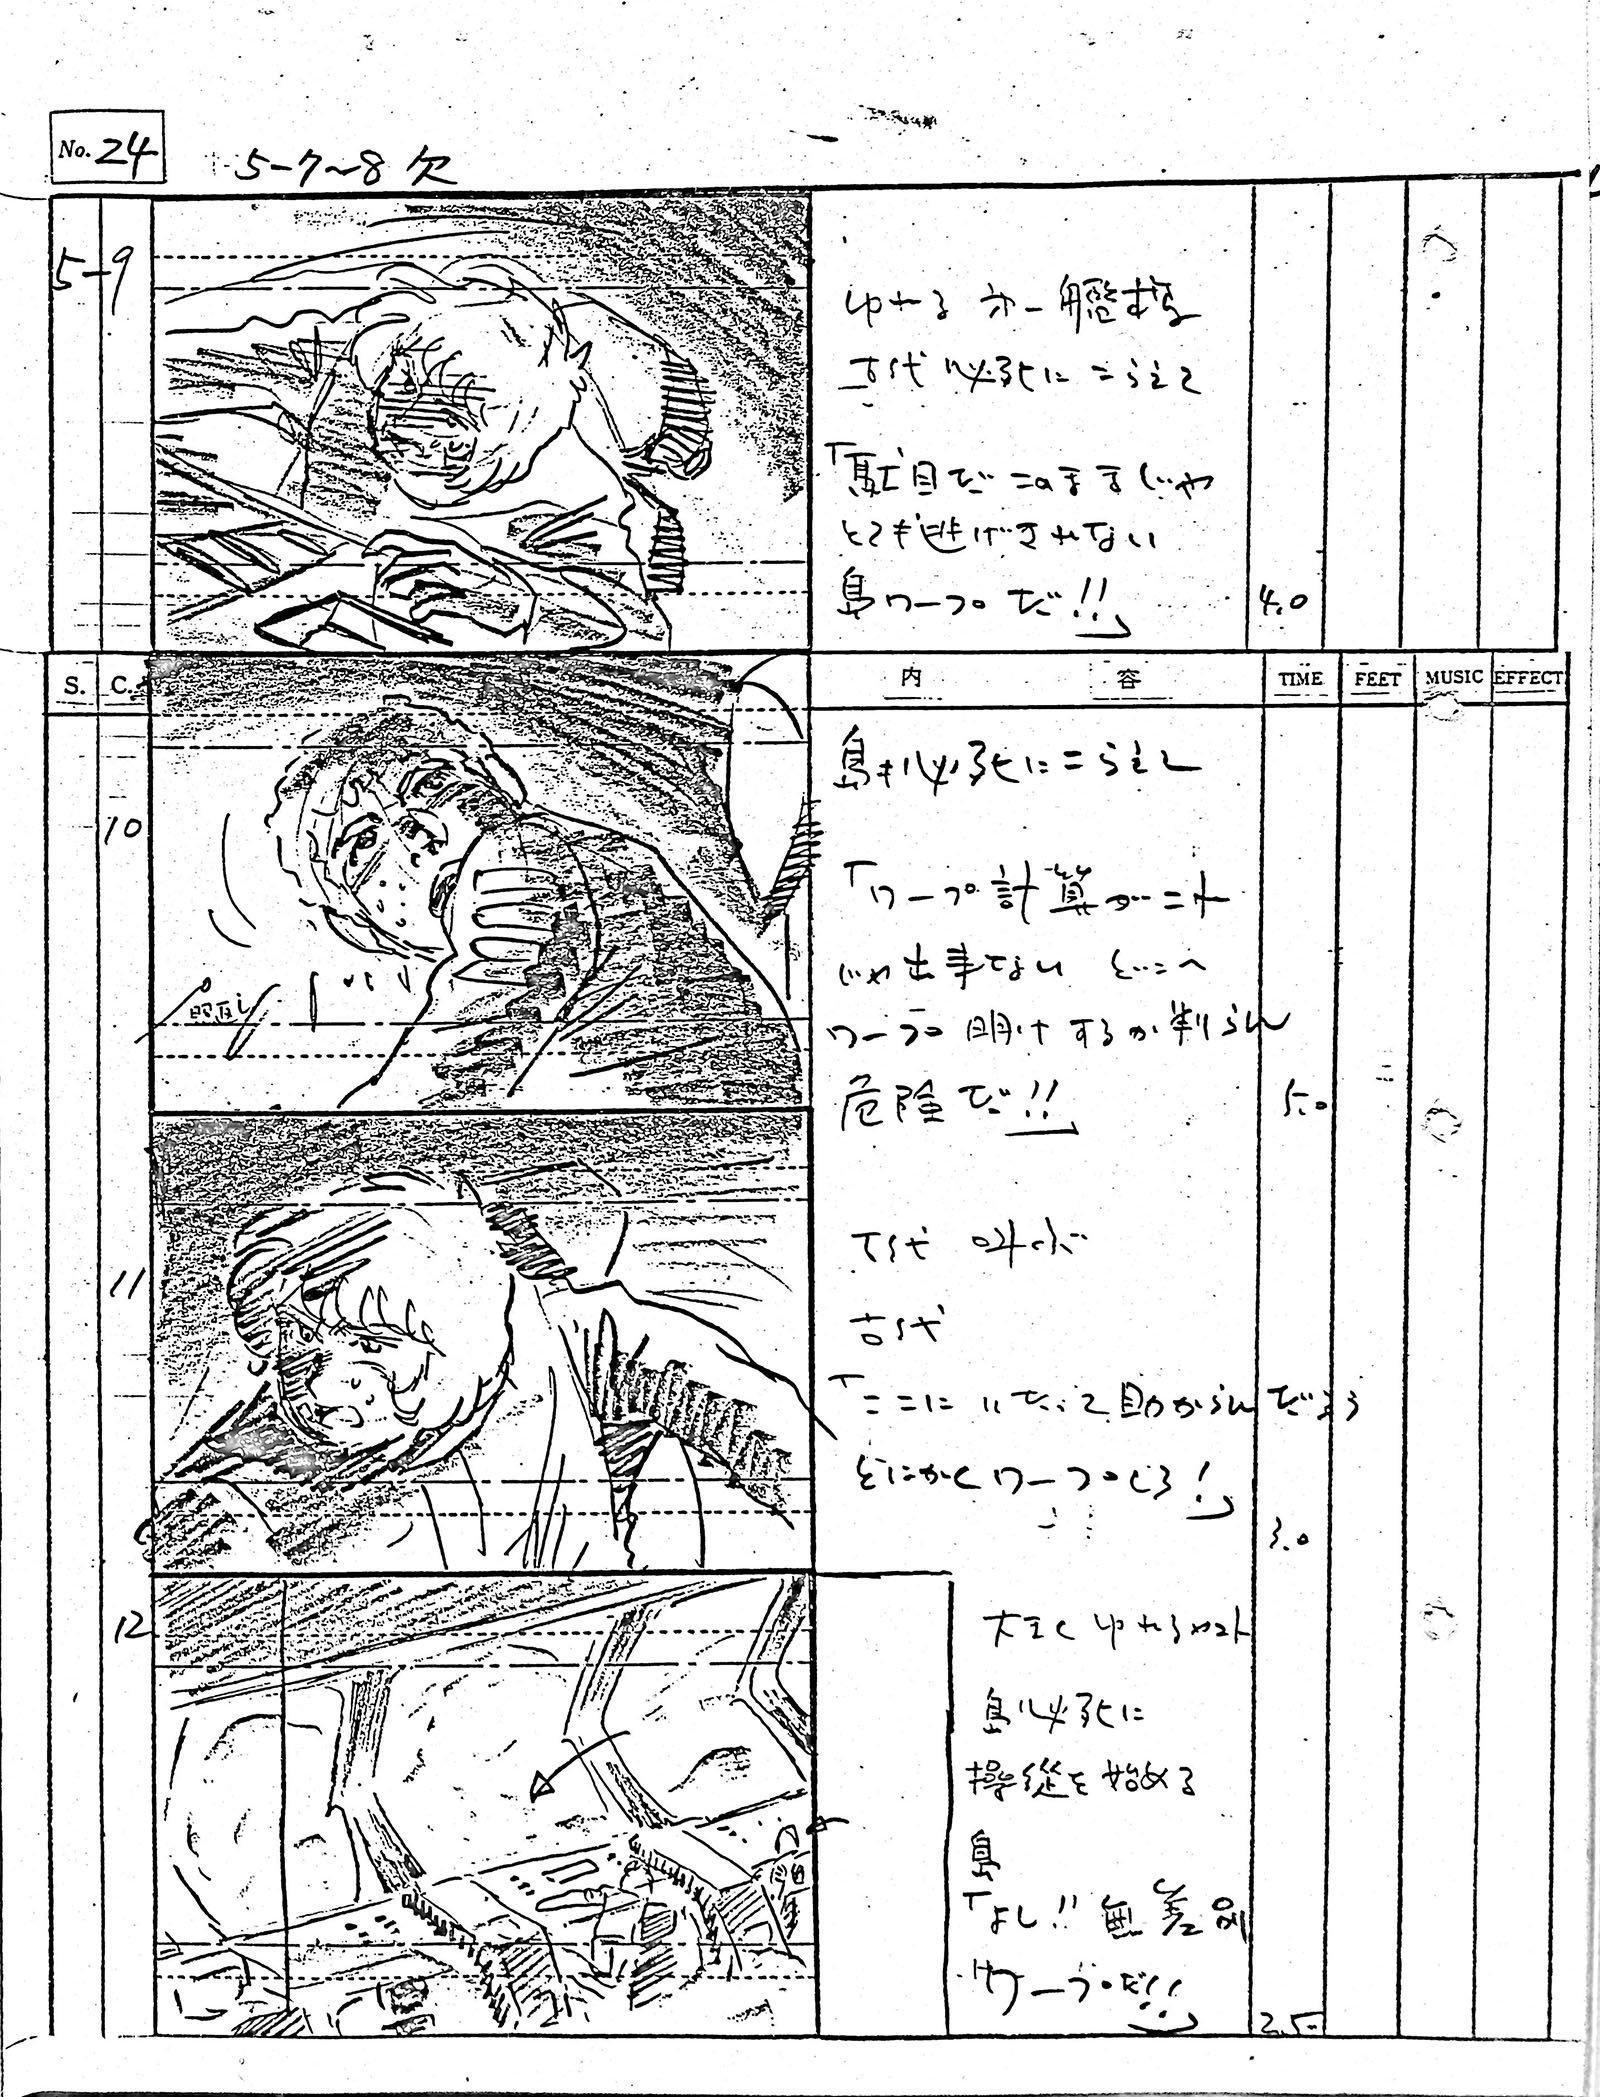 No. 24
5-7~8 欠
5-9
ゆれる 第一艦橋
古代必死にこらえて
「駄目だこのままじゃ
とても逃げきれない
島ワープだ!!」
4.0
S. C. 内 容 TIME FEET MUSIC EFFECT
10
島も必死にこらえて
「ワープ計算がこれ
じゃ出来ない どこへ
ワープ明けするか判らん
危険だ!!」
5.0
照返し
11
古代 叫ぶ
古代
「ここにいたって助からんだろう
とにかくワープしろ!」
3.0
12
大きくゆれるヤマト
島必死に
操縦を始める
島
「よし!! 無差別
ワープだ!!」
2.5